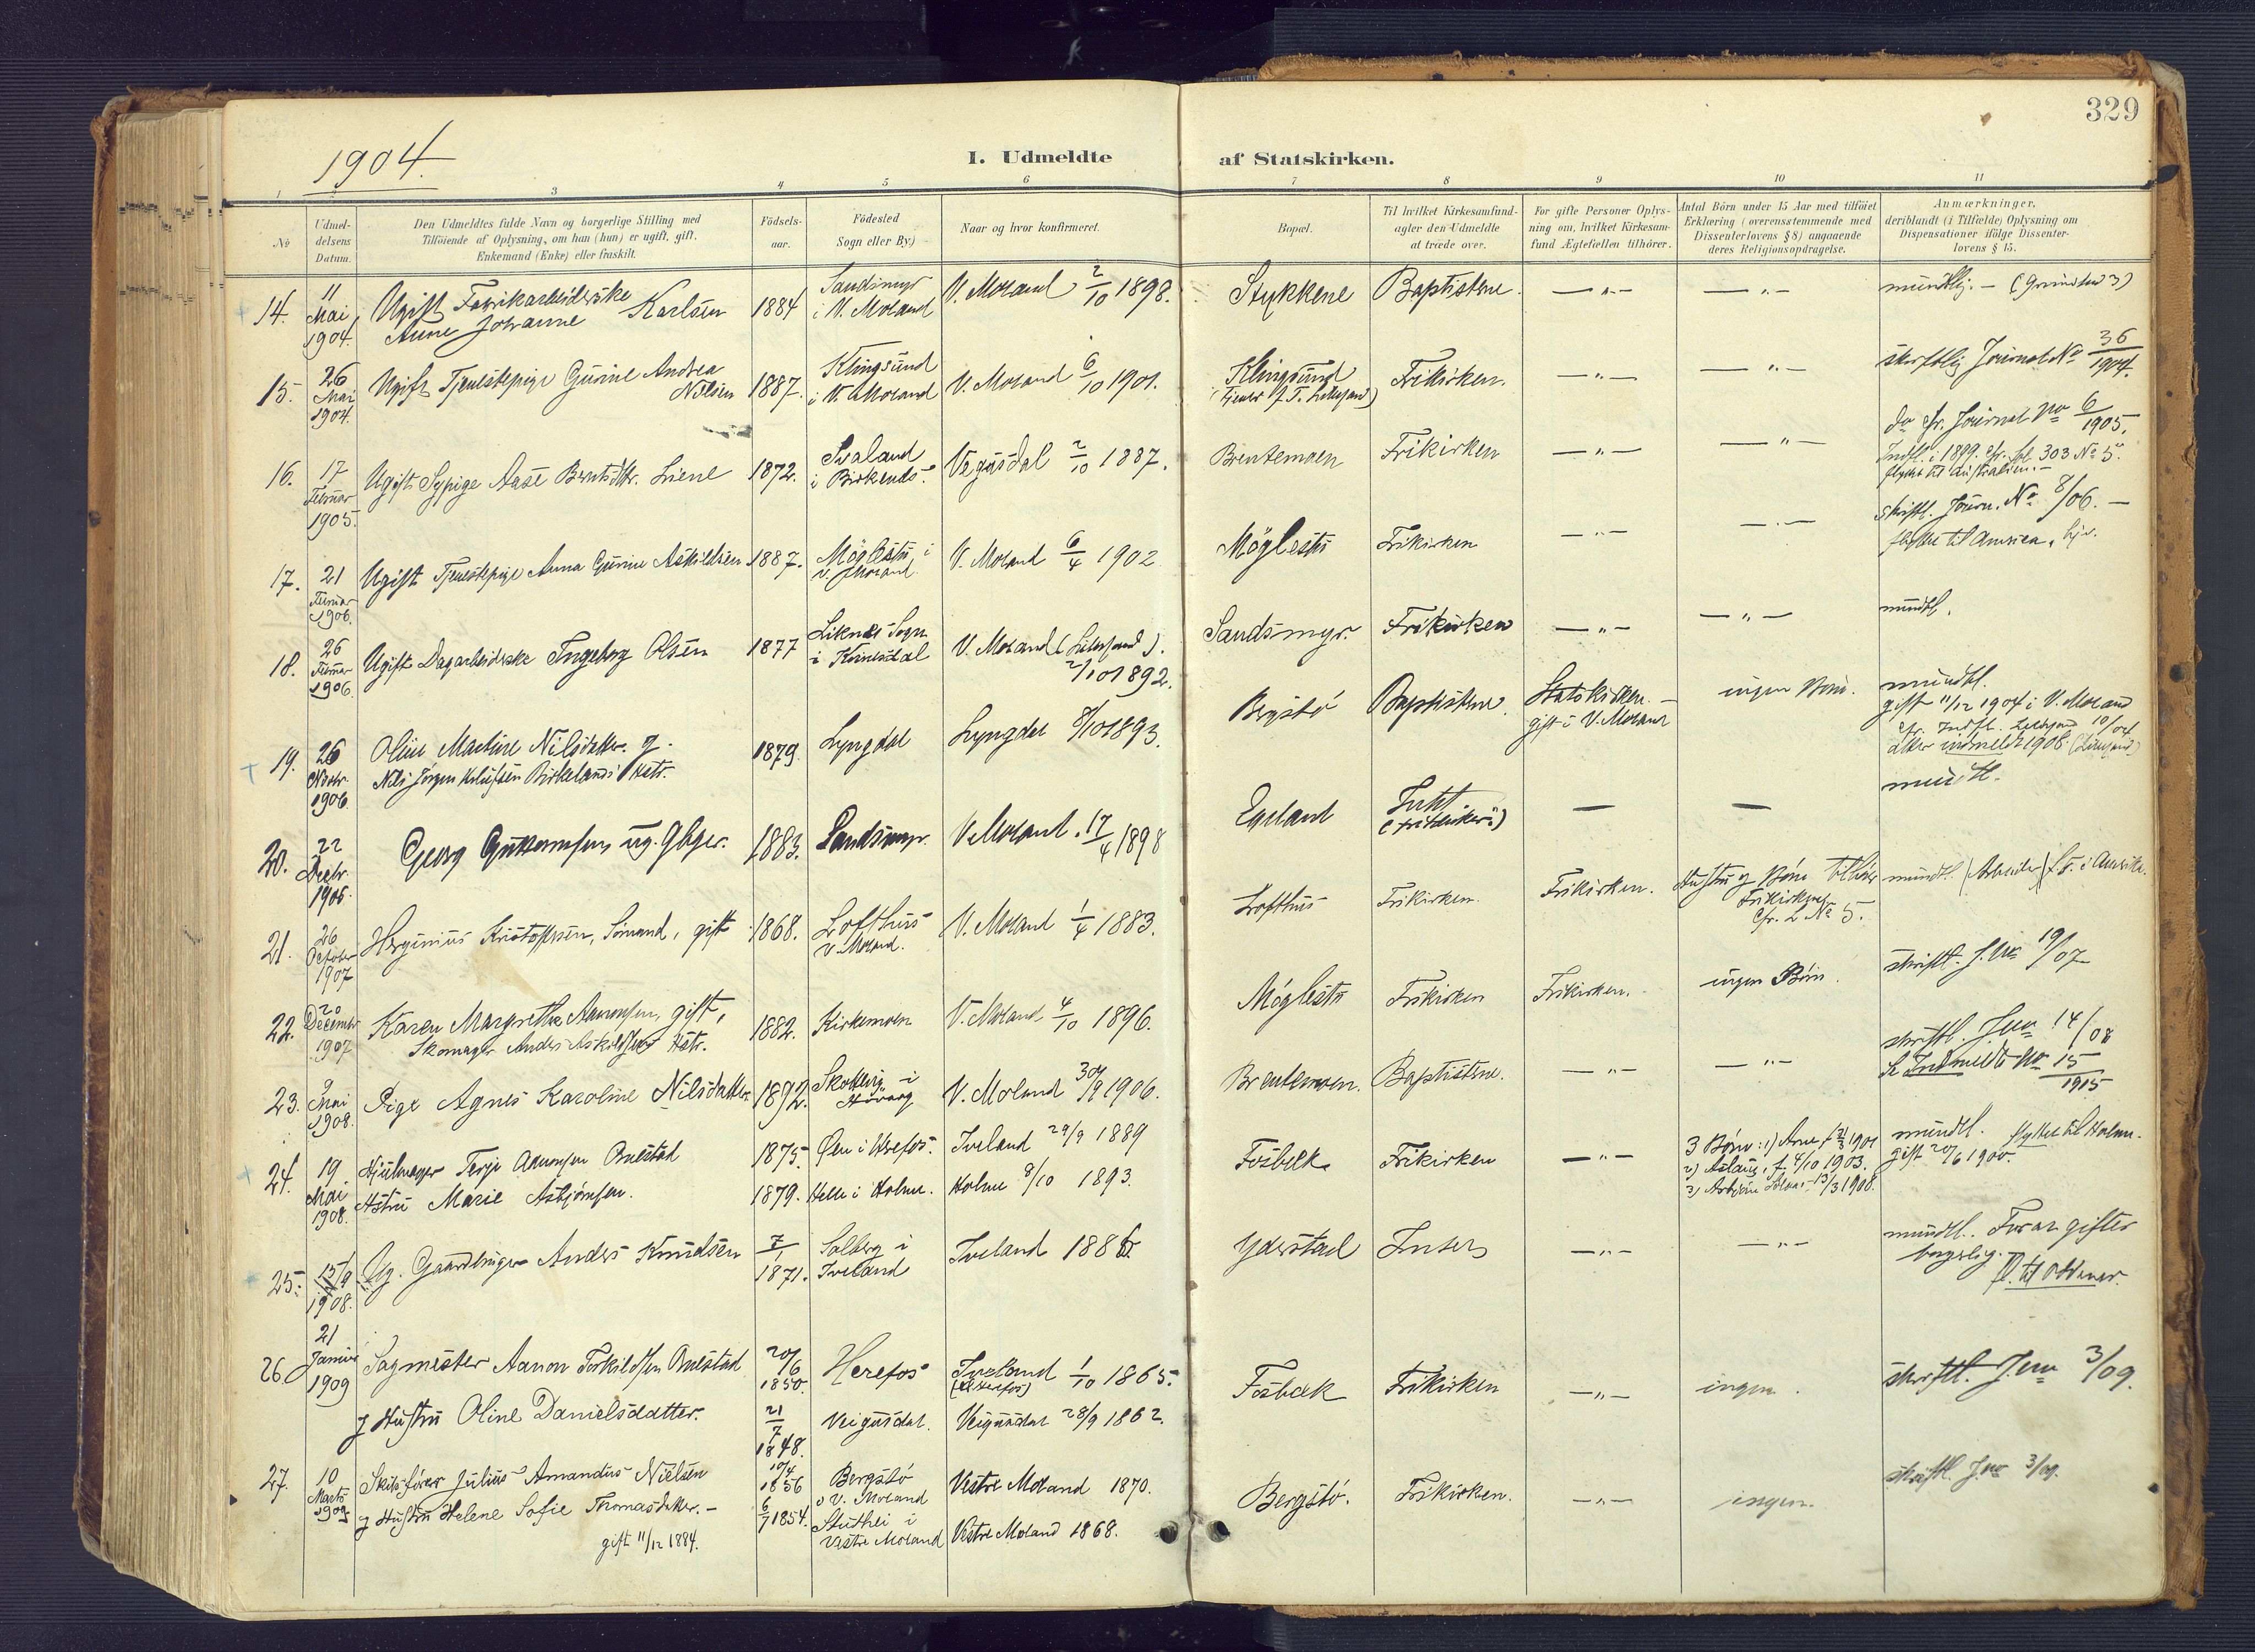 329
1904.
I. Udmeldte af Statskirken.
1 2 3 4 5 6 7 8 9 10 11
No
Udmel-
delsens
Datum.
Den Udmeldtes fulde Navn og borgerlige Stilling med
Tilföiende af Oplysning, om han (hun) er ugift, gift,
Enkemand (Enke) eller fraskilt.
Födsels-
aar.
Födested
Sogn eller By.)
Naar og hvor konfirmeret.
Bopæl.
Til hvilket Kirkesamfund-
agter den Udmeldte
at træde over.
For gifte Personer Oplys-
ning om, hvilket Kirkesam-
fund Ægtefællen tilhörer.
Antal Börn under 15 Aar med tilföiet
Erklæring (overensstemmende med
Dissenterlovens § 8) angaaende
deres Religionsopdragelse.
Anmærkninger,
deriblandt (i Tilfælde) Oplysning om
Dispensationer ifölge Dissenter-
lovens § 15.
14. 11 Mai 1904. Ugift Fabrikarbeiderske Anne Johanne Karlsen 1884 Sandsmyr i V. Moland V. Moland 2/10 1898. Stykkene Baptisterne. — " — — " — mundtlig. —
15. 26 Mai 1904. Ugift Tjenestepige Gurine Andrea Nilsen 1887. Klingsund i V. Moland V. Moland 6/10 1901. Klingsund Frikirken. — " — — " — skriftlig Journal No 36/1904.
16. 17 Februar 1905. Ugift Sypige Aase Berntsdtr. Liene 1872. Svaland i Birkenæs. Vegusdal 2/10 1887. Brentemoen Frikirken — " — — " — do cfr. Journal No 6/1905.
Indfl. i 1899. cfr. fol. 303 No 5.
flyttet til Australien. —
17. 21 Februar 1906. Ugift Tjenestepige Anna Gurine Askildsen 1887. Möglestu i V. Moland V. Moland 6/4 1902 Möglestu Frikirken — " — — " — skriftl. Journ. No 8/06. —
flyttet til America
18. 26 Februar 1906. Ugift Dagarbeiderske Ingeborg Olsen 1877 Liknes Sogn i Kvinesdal V. Moland (Lillesand). 2/10 1892. Sandsmyr. Frikirken — " — — " — mundtl.
19. 26 Novbr. 1906 Oline Martine Nilsdatter g. Nils Jörgen Birkelands Hstr. 1879. Lyngdal Lyngdal 8/10 1893. Bergstö Baptisterne. Statskirken. — gift i V. Moland ingen Börn. mundtl.
gift 11/12 1904 i V. Moland
cfr. Indfl. Lillesand 10/04
atter indmeldt 1908. (Lillesand)
20. 22 Decbr. 1906. Georg ug. 1883. Sandsmyr. V. Moland 17/4 1898 Egeland Intet (Fritænker) — — mundtl.
21. 26 October 1907 Herginius Kristoffersen, Sömand, gift 1868. Lofthus V. Moland. V. Moland 1/4 1883. Lofthus Frikirken. Frikirken. Hustru og Börn tilhör Frikirken cfr. L No 5. mundtl. (Arbeider) i Amerika.
22. 20 December 1907 Karen Margrethe Aanonsen, gift, Skomager Anders Askildsens Hstr. 1882. Kirkemoen V. Moland 4/10 1896. Möglestu Frikirken Frikirken. ingen Börn. skriftl. J. No 19/07
23. 9 Mai 1908. Pige Agnes Karoline Nilsdatter 1892. Skottevig i Hövaag V. Moland 30/9 1906. Brentemoen. Baptisterne. — " — — " — skriftl. J. No 14/08
Se Indmeldte No 15/1915
24. 19 Mai 1908. Hjulmager Terje Aanonsen Ouestad 1875. Öen i Herefos. Iveland 29/9 1889 Fosbæk Frikirken — " — 3 Börn: 1) Arne f. 1901
2) Aslaug, f. 4/10 1903.
3) Asbjörn 13/3 1908.
mundtl. flyttet til Holme.
gift 20/6 1900.
Hstru Marie Asbjörnsen. 1879. Helle i Holme. Holme 8/10 1893.
25. 15/9 1908. Ug. Gaardbruger Anders Knudsen 7/1 1871. Solberg i Iveland Iveland 1886. Yderstad Intet — " — — " — mundtl. Foran giftes
borgerlig.
fl. til Oddernes.
26 21 Januar 1909 Sagmester Aanon Torkildsen Ouestad 20/6 1850. Herefos Iveland (Herefos) 1/10 1865. Fosbæk Frikirken — " — ingen. skriftl. J. No 3/09.
g Hustru Oline Danielsdatter. 21/7 1848. Veigusdal. Veigusdal 28/9 1862.
27. 10 Marts 1909 Skibsförer Julius Amandus Nielsen 10/4 1856 Bergstö i V. Moland Vestre Moland 1870. Bergstö. Frikirken. — " — ingen. skriftl. J. No 3/09.
g Hustru Helene Sofie Thomasdatter. — 6/7 1854. Stuthei i Vestre Moland Vestre Moland 1868.
gift 11/12 1884.